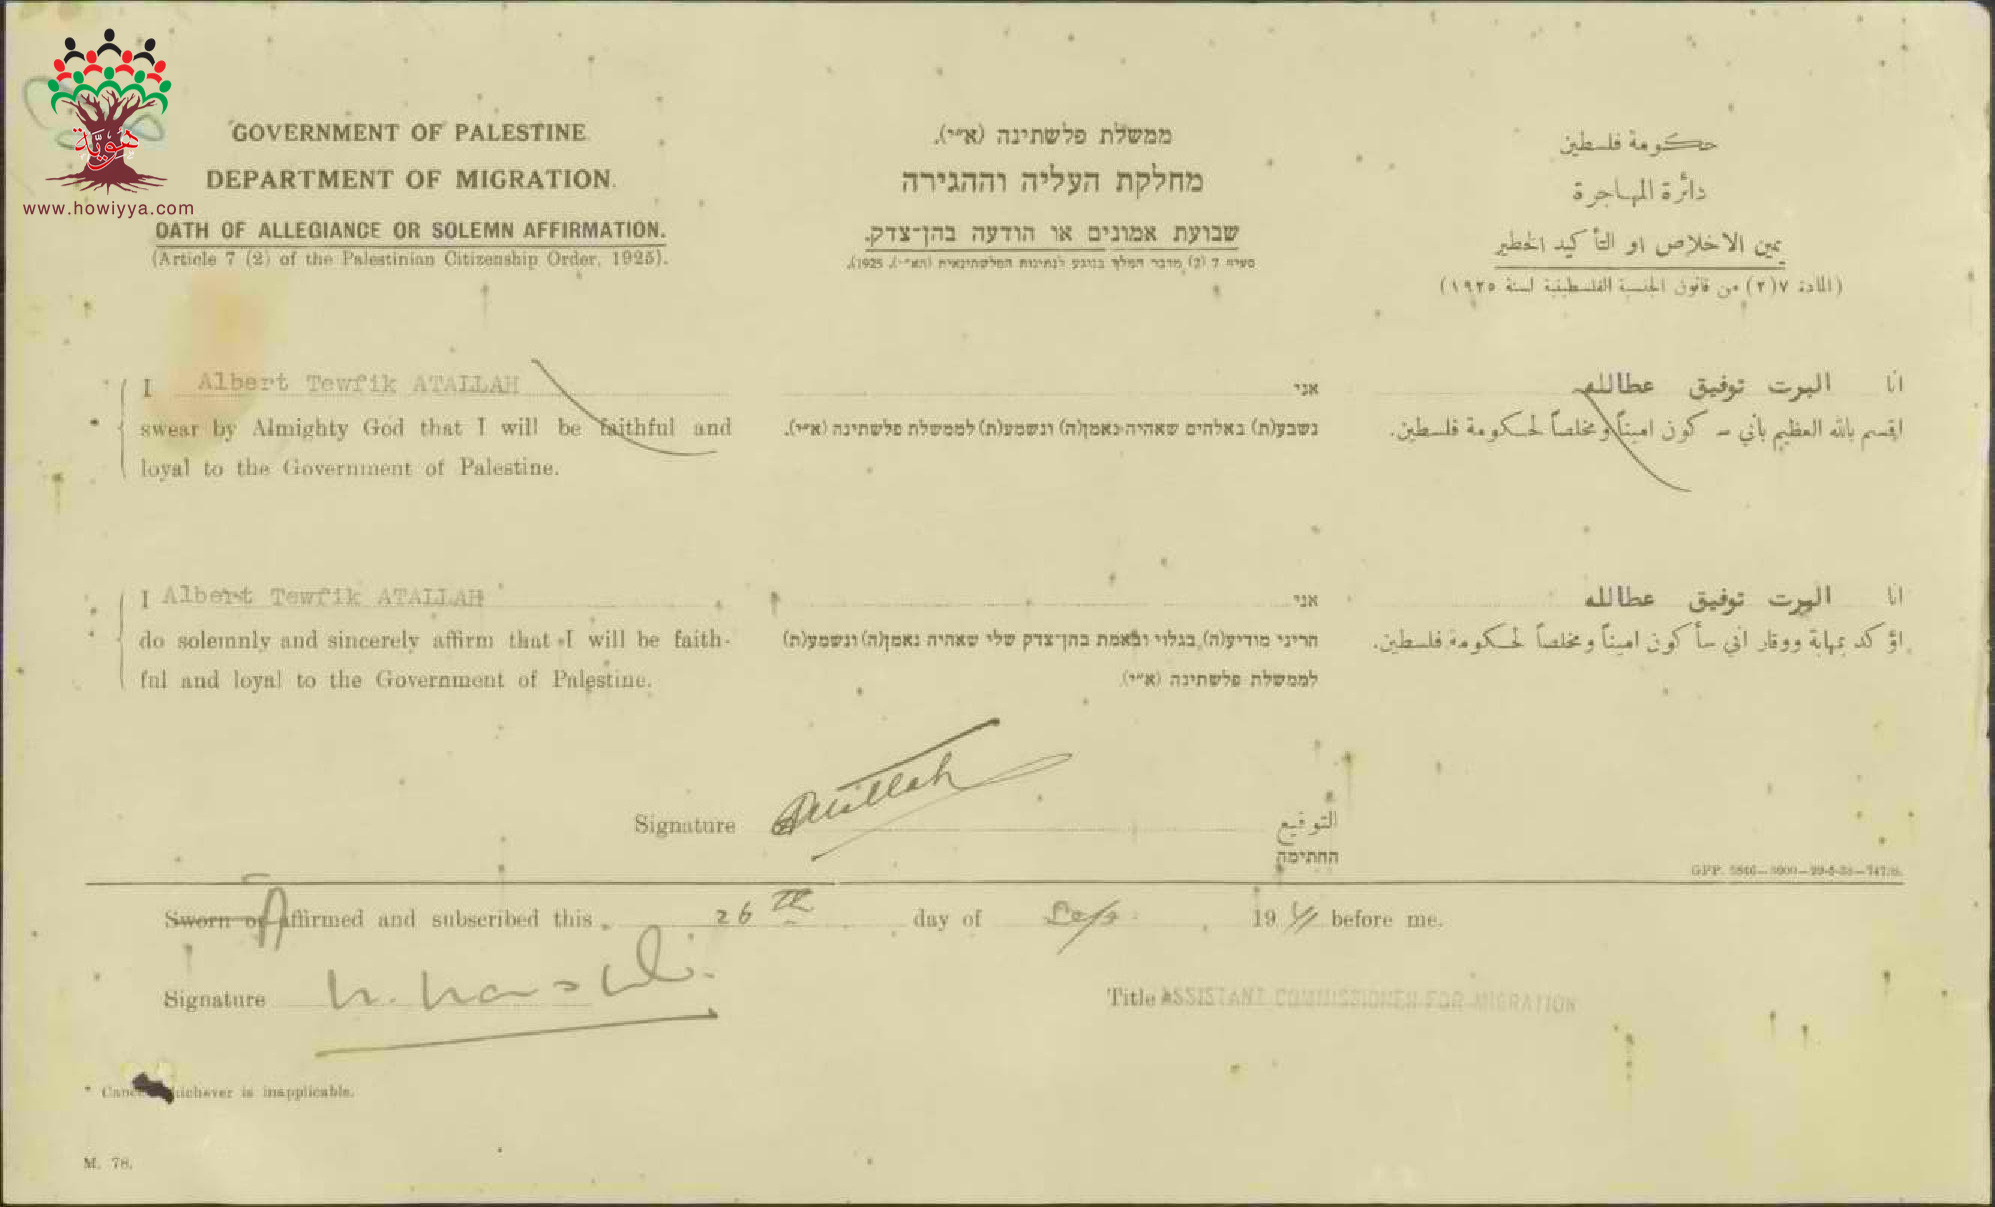 هُوِيَّة
www.howiyya.com
GOVERNMENT OF PALESTINE.
DEPARTMENT OF MIGRATION.
OATH OF ALLEGIANCE OR SOLEMN AFFIRMATION.
(Article 7 (2) of the Palestinian Citizenship Order, 1925).
ממשלת פלשתינה (א״י).
מחלקת העליה וההגירה
שבועת אמונים או הודעה בהן־צדק.
סעיף 7 (2) מדבר המלך בנוגע לנתינות הפלשתינאית (הא״י), 1925).
حكومة فلسطين
دائرة المهاجرة
يمين الاخلاص او التأكيد الخطير
(المادة ٧(٢) من قانون الجنسية الفلسطينية لسنة ١٩٢٥)
I Albert Tewfik ATALLAH
swear by Almighty God that I will be faithful and
loyal to the Government of Palestine.
אני
נשבע(ת) באלהים שאהיה נאמן(ה) ונשמע(ת) לממשלת פלשתינה (א״י).
انا البرت توفيق عطالله
اقسم بالله العظيم بأني سـ كون اميناً ومخلصاً لحكومة فلسطين.
I Albert Tewfik ATALLAH
do solemnly and sincerely affirm that I will be faith-
ful and loyal to the Government of Palestine.
אני
הריני מודיע(ה) בגלוי ובאמת בהן־צדק שלי שאהיה נאמן(ה) ונשמע(ת)
לממשלת פלשתינה (א״י).
انا البرت توفيق عطالله
اؤكد بمهابة ووقار اني سأكون اميناً ومخلصاً لحكومة فلسطين.
Signature Atallah التوقيع
החתימה
GPP.
Sworn or Affirmed and subscribed this 26th day of 19 before me.
Signature
Title ASSISTANT COMMISSIONER FOR MIGRATION
* Cancel whichever is inapplicable.
M. 78.